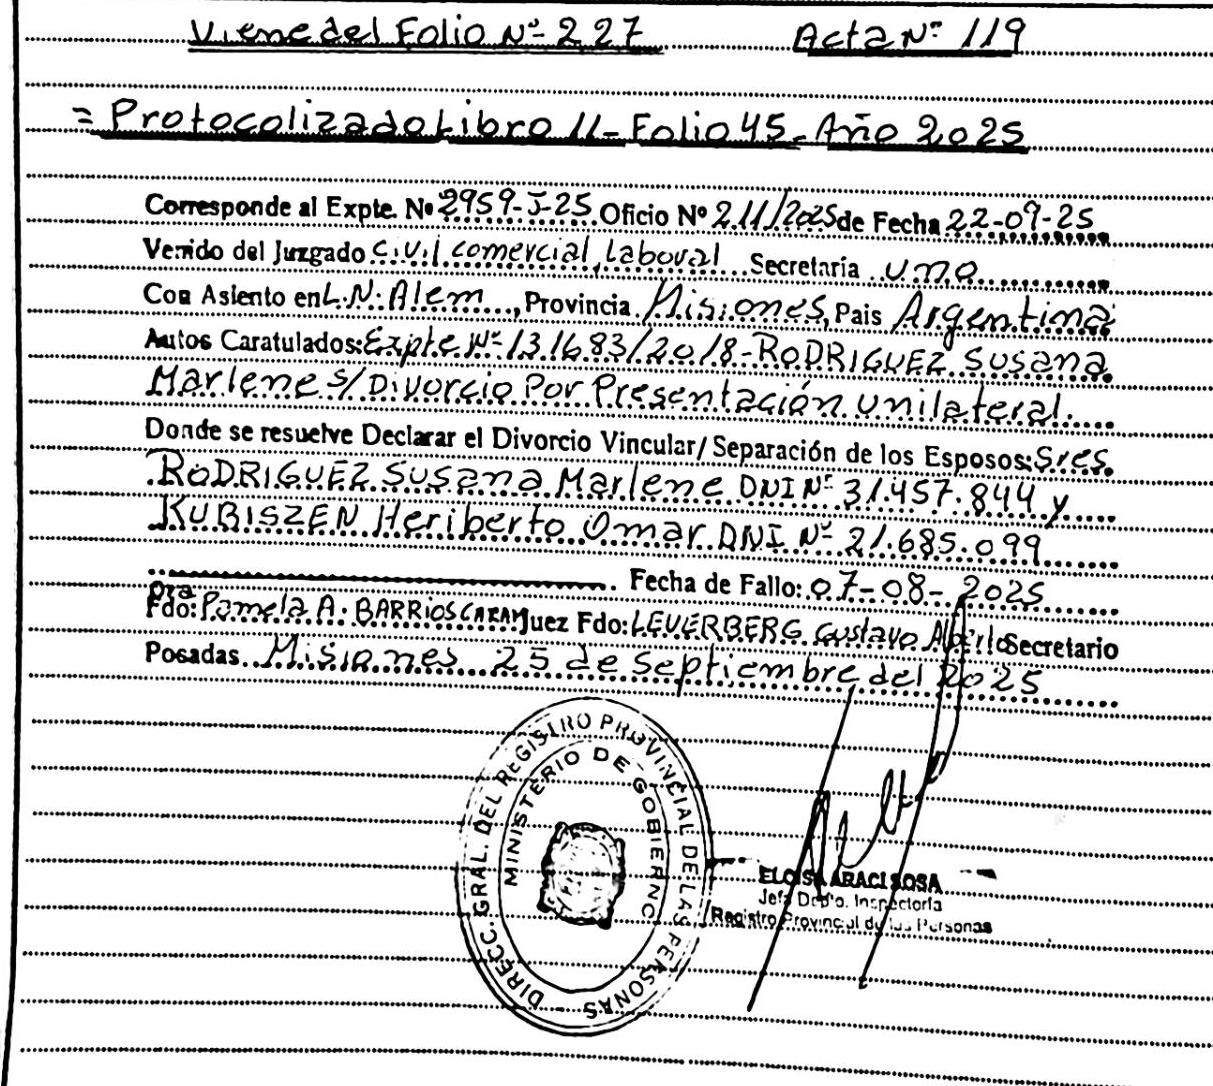 Viene del Folio Nº 227 Acta Nº 119
= Protocolizado Libro 11 - Folio 45 - Año 2025
Corresponde al Expte. Nº 2959-J-25 Oficio Nº 211/2025 de Fecha 22-09-25
Venido del Juzgado Civil comercial, Laboral Secretaría una
Con Asiento en L.N. Alem, Provincia Misiones, Pais Argentina
Autos Caratulados: Expte Nº 131683/2018 - RODRIGUEZ Susana
Marlene s/ Divorcio Por Presentación unilateral.
Donde se resuelve Declarar el Divorcio Vincular/ Separación de los Esposos: Sres.
RODRIGUEZ Susana Marlene DNI Nº 31.457.844 y
KUBISZEN Heriberto Omar DNI Nº 21.685.099
Fecha de Fallo: 07-08-2025
Dra.
Fdo: Pamela A. BARRIOS Juez Fdo: LEVERBERG Gustavo Alberto Secretario
Posadas Misiones 25 de Septiembre del 2025
DIRECC. GRAL. DEL REGISTRO PROVINCIAL DE LAS PERSONAS
MINISTERIO DE GOBIERNO
ARACI SOSA
Jefa Depto. Inspectoría
Registro Provincial de las Personas